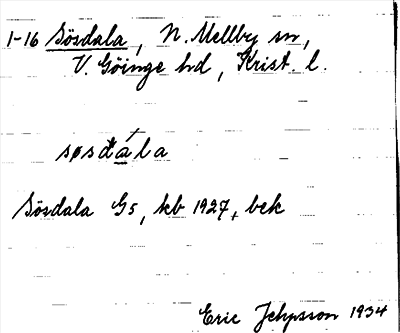 1-16 Sösdala, N. Mellby sn,
V. Göinge hd, Krist. l.
søsdála
Sösdala Gs, kb 1927, bek
Eric Jehpsson 1934